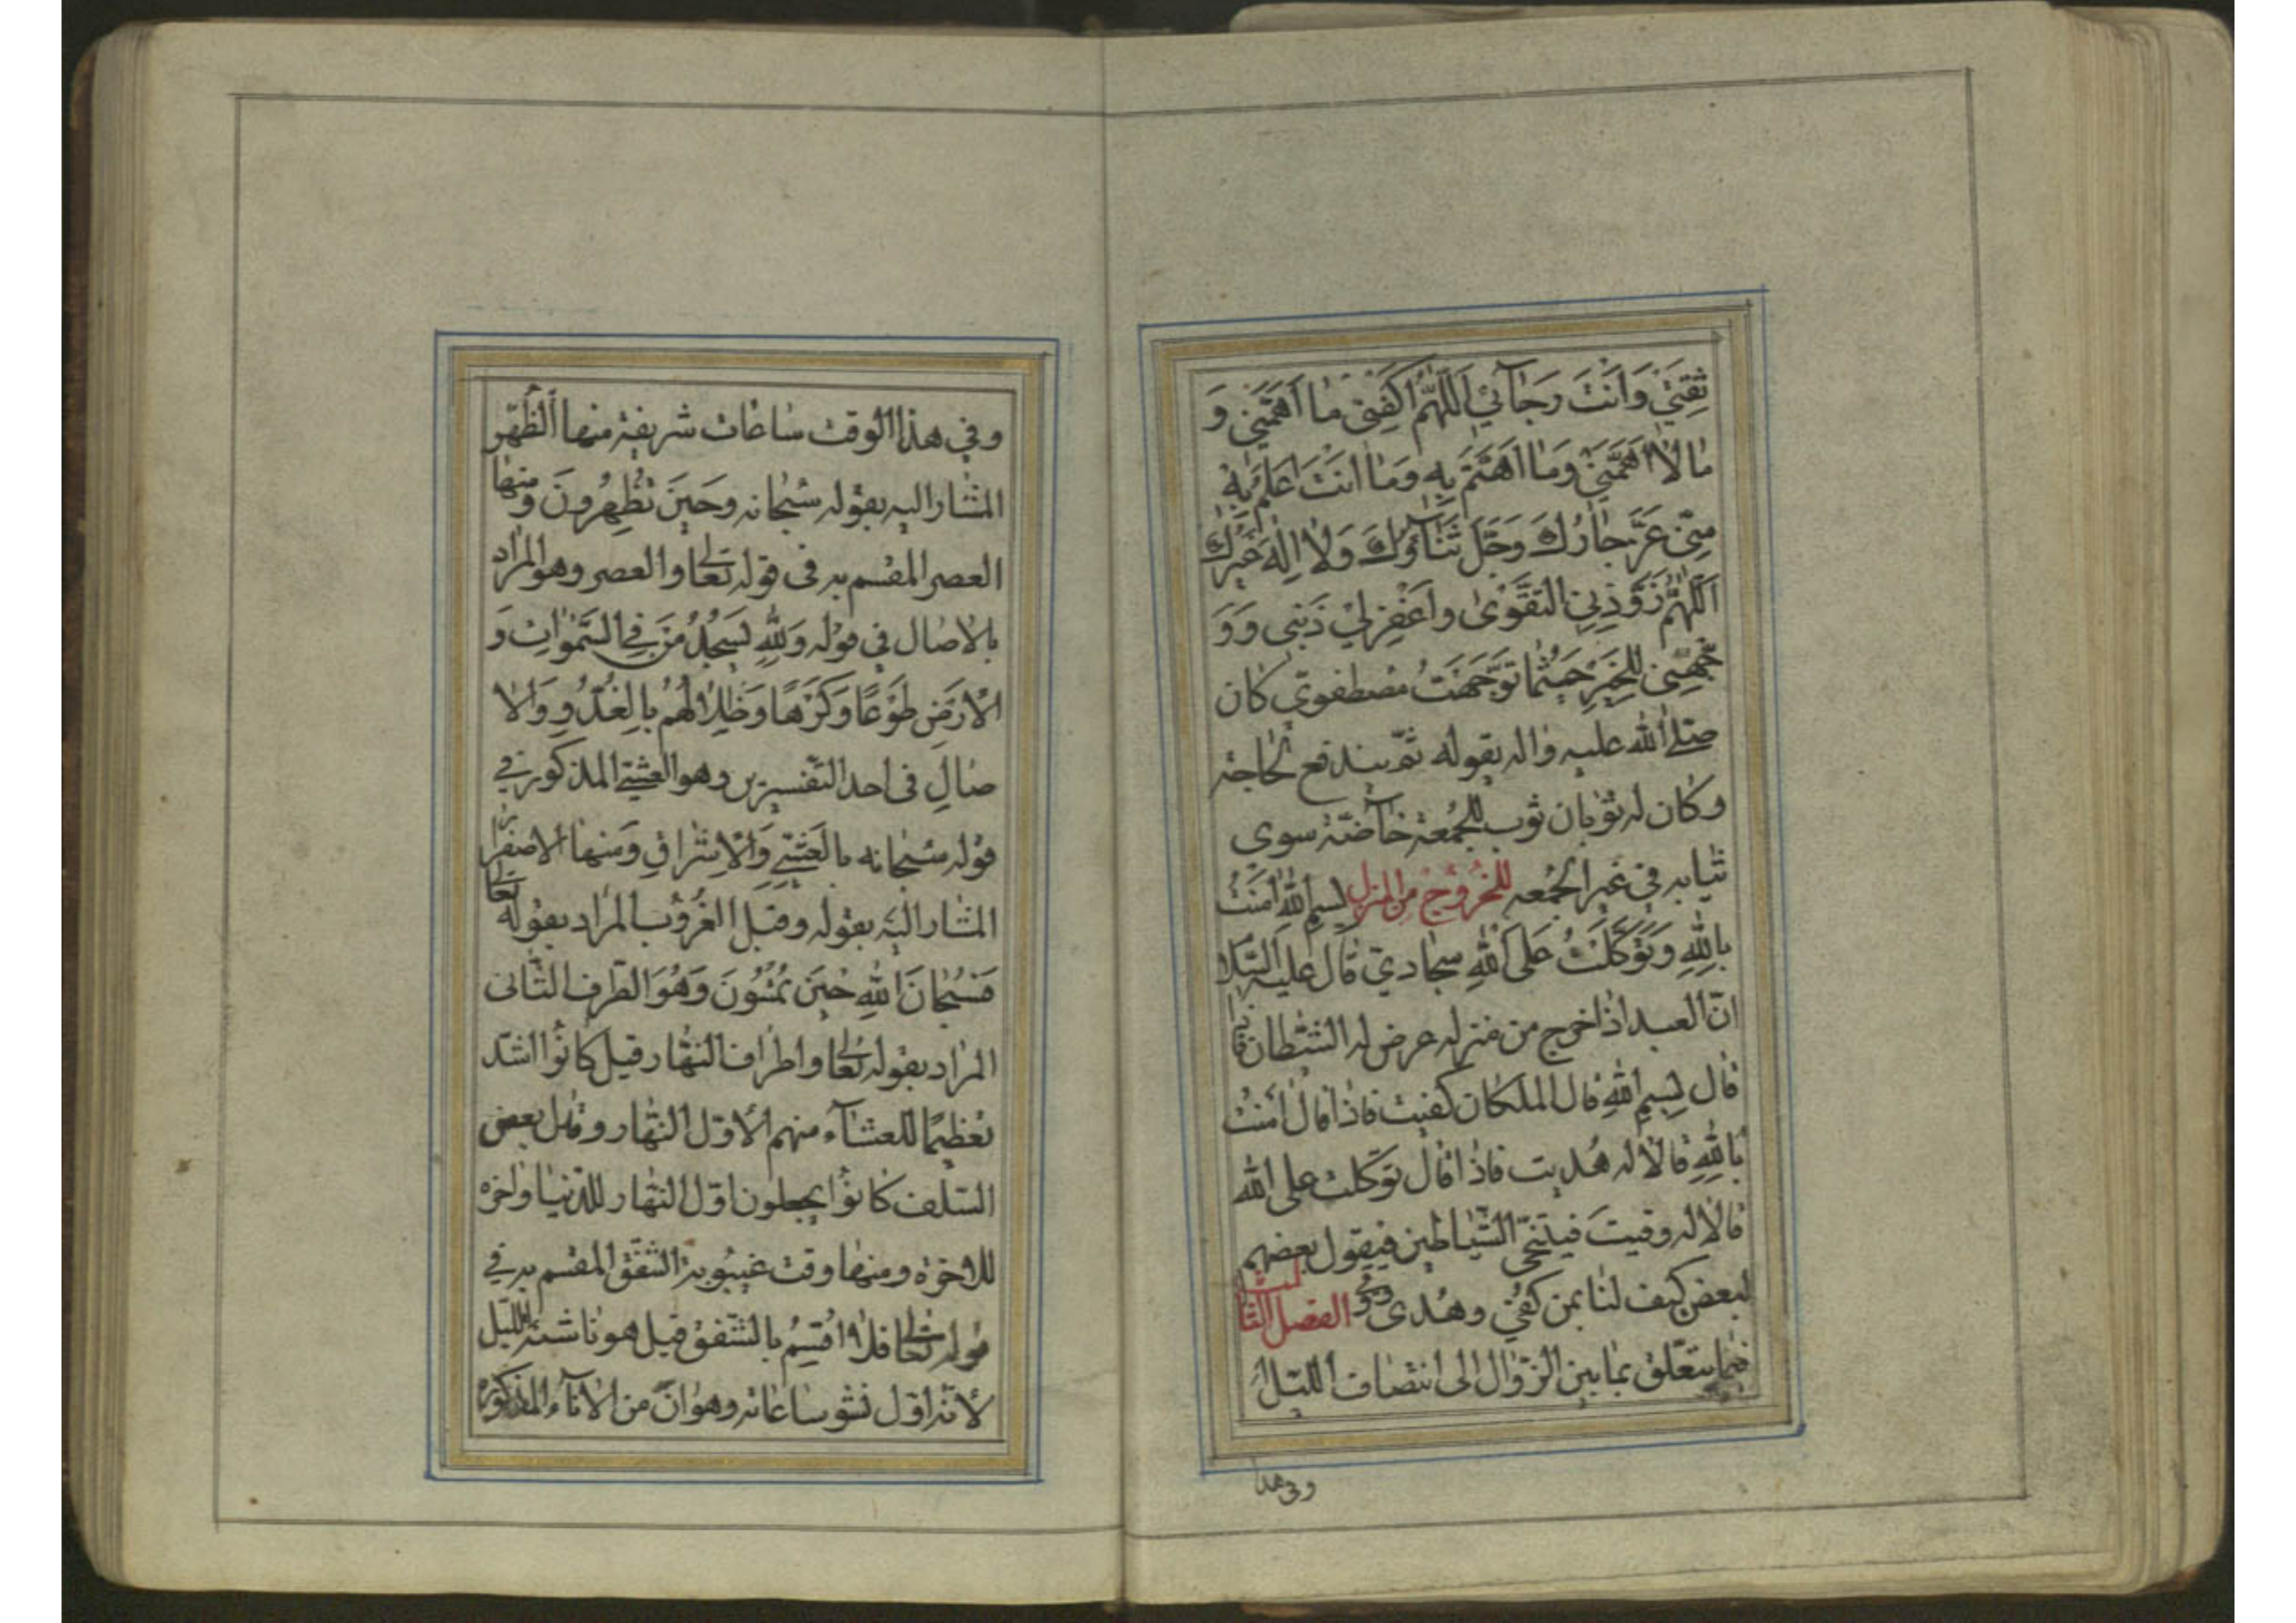 ثِقَتِي وَاَنْتَ رَجَائِي اَللّٰهُمَّ اكْفِنِي مٰا اَهَمَّنِي وَ
مٰا لاٰ اَهَمَّنِي وَمٰا اَهْتَمُّ بِهِ وَمٰا اَنْتَ اَعْلَمُ بِهِ
مِنِّي عَزَّ جٰارُكَ وَجَلَّ ثَنٰاؤُكَ وَلاٰ اِلٰهَ غَيْرُكَ
اَللّٰهُمَّ زَوِّدْنِي التَّقْوىٰ وَاغْفِرْ لِي ذَنْبِي وَوَ
جِّهْنِي لِلْخَيْرِ حَيْثُمٰا تَوَجَّهْتُ مصطفوي كان
صلى الله عليه واله يقوله ثم يندفع لحاجته
وكان له ثوبان ثوب للجمعة خاصّة سوى
ثيابه في غير الجمعه للخروج من المنزل بِسْمِ اللهِ اٰمَنْتُ
بِاللهِ وَتَوَكَّلْتُ عَلَى اللهِ سجادي قال عليه السلا
انّ العبد اذا خرج من منزله عرض له الشيطان فاذا
قال بسم الله قال الملكان كفيت فاذا قال امنت
بالله قالا له هديت فاذا قال توكلت على الله
قالا له وقيت فيتنحّى الشياطين فيقول بعضهم
لبعض كيف لنا بمن كفي وهدى ووقي الفصل الثالث
فيما يتعلّق بما بين الزوال الى انتصاف الليل
وفي هذا
وفي هذا الوقت ساعات شريفة منها الظهر
المشار اليه بقوله سبحانه وحين تظهرون ومنها
العصر المقسم به في قوله تعالى والعصر وهو المراد
بالاصال في قوله وَلِلّٰهِ يَسْجُدُ مَنْ فِي السَّمٰوٰاتِ وَ
الْاَرْضِ طَوْعًا وَكَرْهًا وَظِلاٰلُهُمْ بِالْغُدُوِّ وَالْاٰ
صٰالِ في احد التفسيرين وهو العشيّ المذكور في
قوله سبحانه بِالْعَشِيِّ وَالْاِشْرٰاقِ ومنها الاصفرار
المشار اليه بقوله وقبل الغروب المراد بقوله تعالى
فَسُبْحٰانَ اللهِ حِينَ تُمْسُونَ وهو الطرف الثاني
المراد بقوله تعالى واطراف النهار قيل كانوا اشدّ
تعظيما للعشاء منهم لاوّل النهار وقال بعض
السلف كانوا يجعلون اوّل النهار للدّنيا واخره
للاخرة ومنها وقت غيبوبة الشفق المقسم به في
قوله تعالى فَلاٰ اُقْسِمُ بِالشَّفَقِ قيل هو ناشئة الليل
لانّه اوّل نشو ساعاته وهو انٌ من الاناء المذكورة